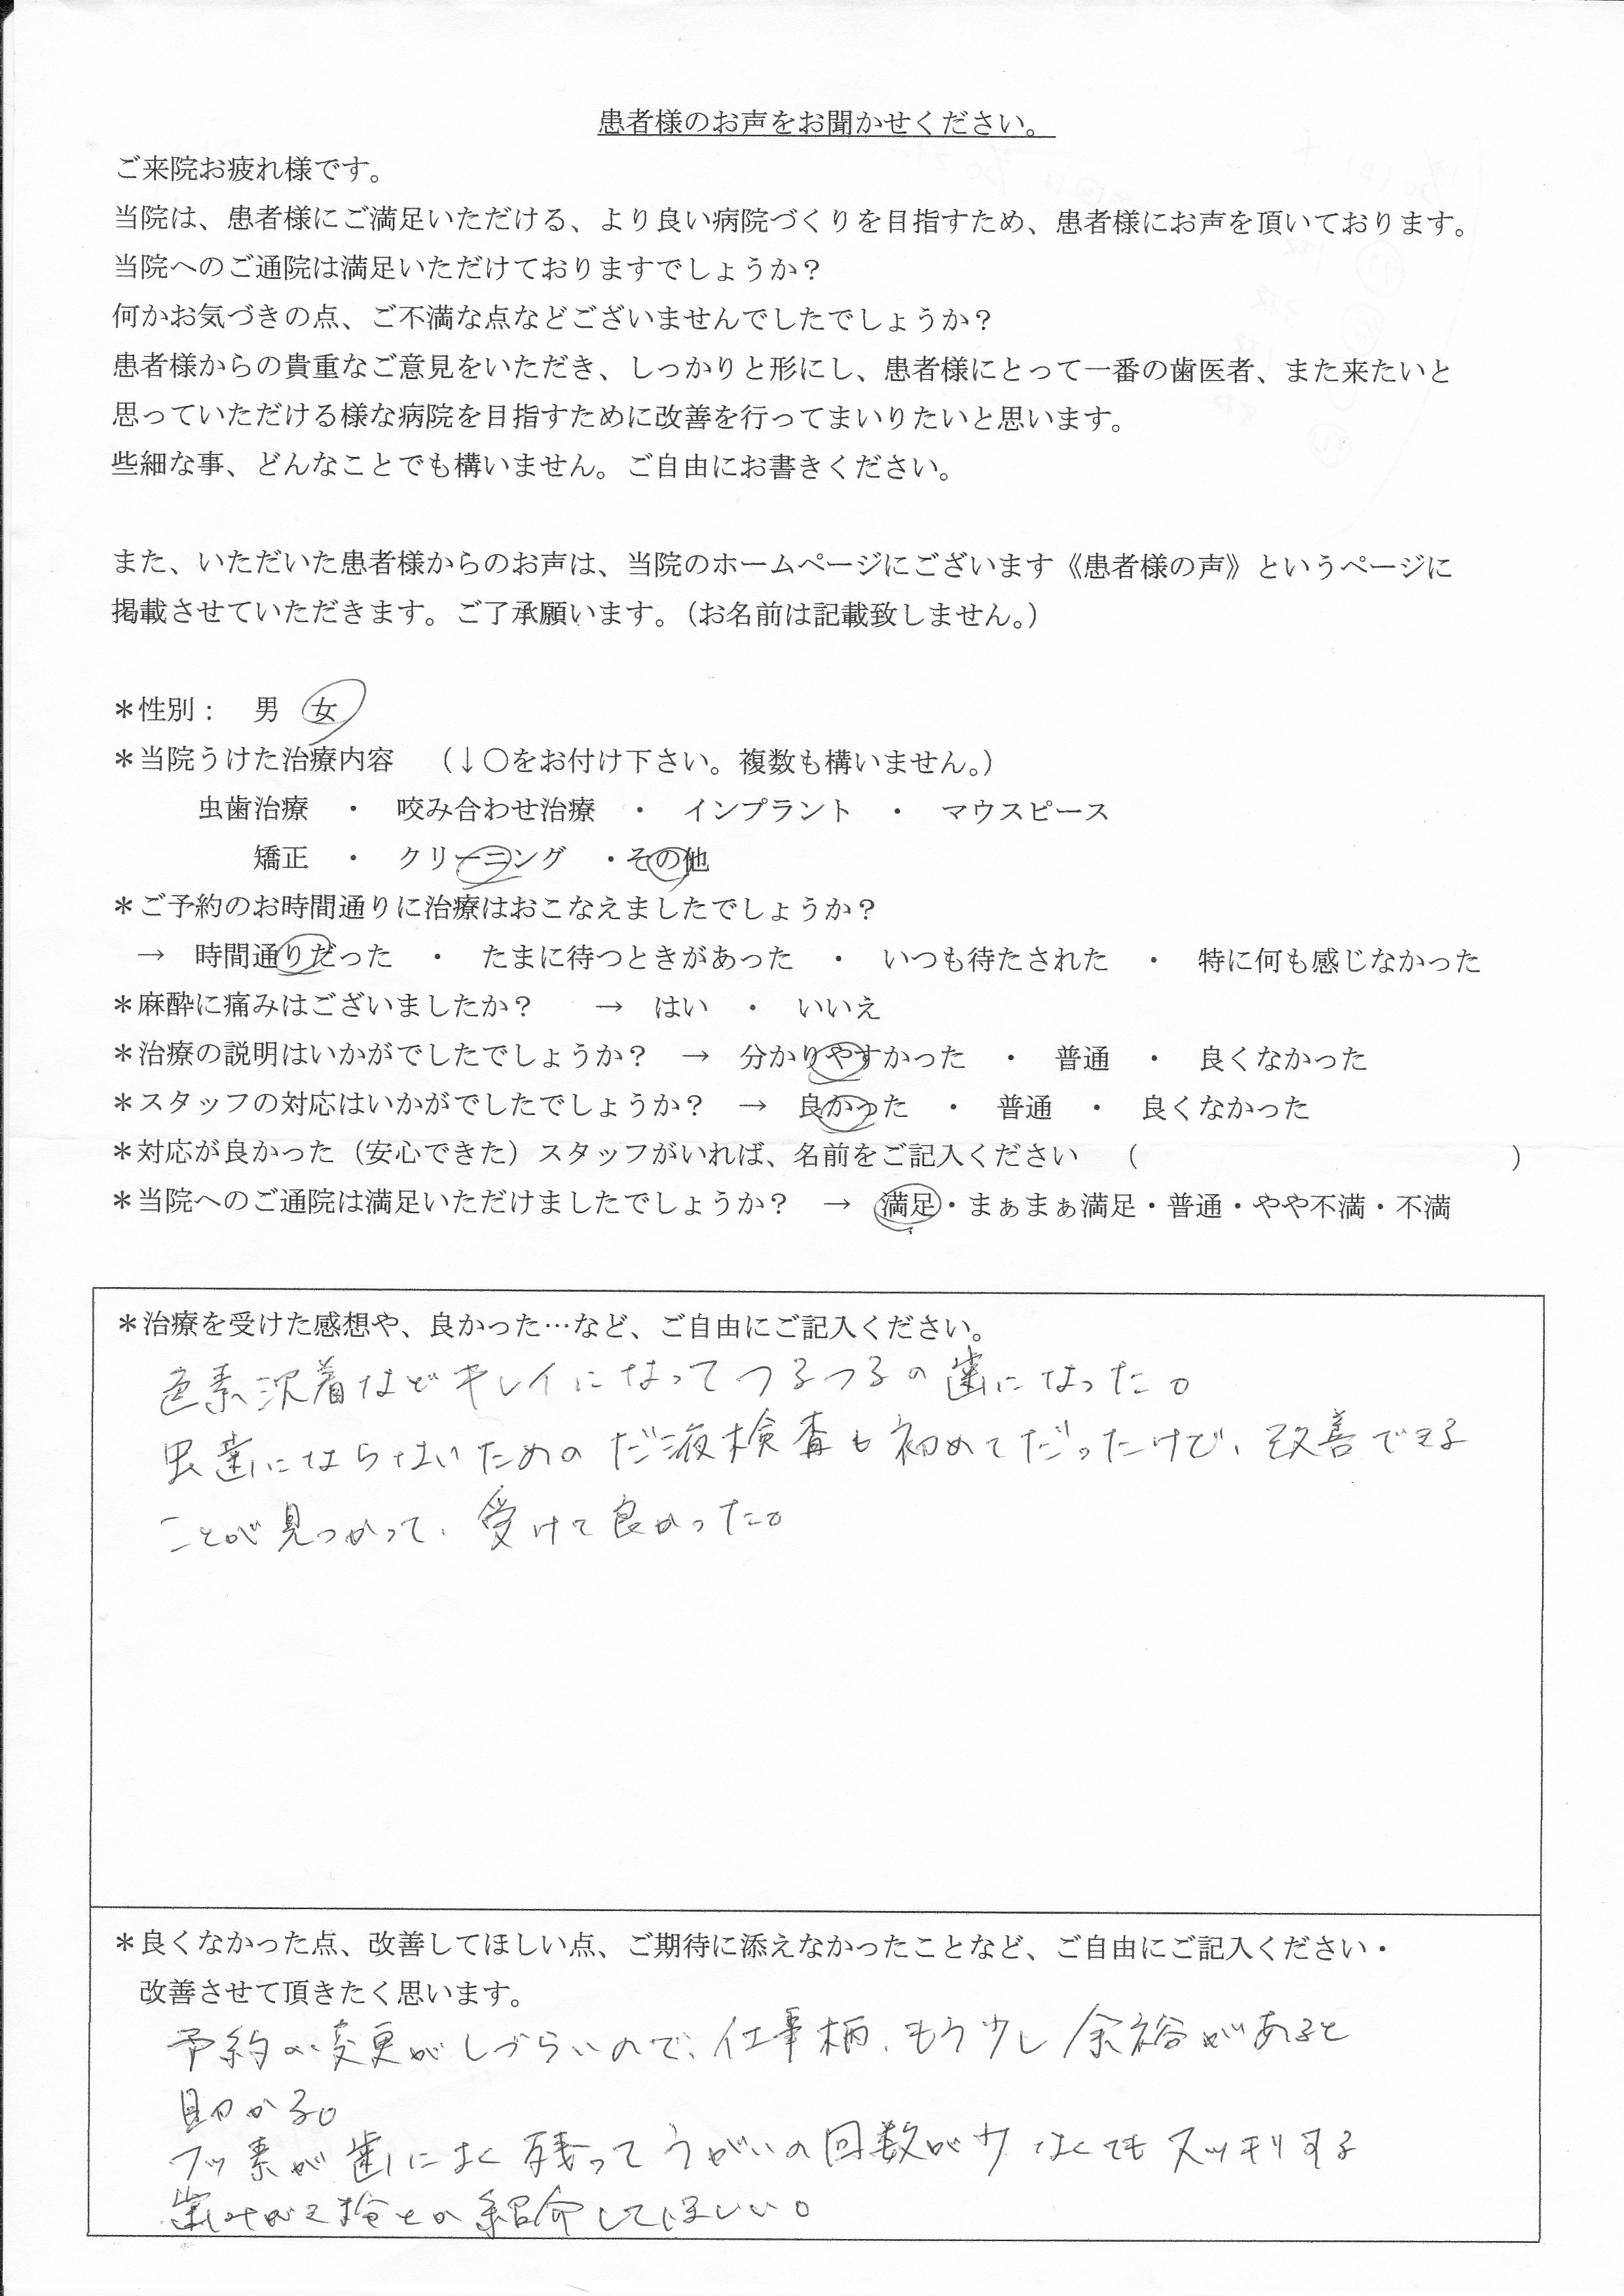 患者様のお声をお聞かせください。
ご来院お疲れ様です。
当院は、患者様にご満足いただける、より良い病院づくりを目指すため、患者様にお声を頂いております。
当院へのご通院は満足いただけておりますでしょうか？
何かお気づきの点、ご不満な点などございませんでしたでしょうか？
患者様からの貴重なご意見をいただき、しっかりと形にし、患者様にとって一番の歯医者、また来たいと
思っていただける様な病院を目指すために改善を行ってまいりたいと思います。
些細な事、どんなことでも構いません。ご自由にお書きください。
また、いただいた患者様からのお声は、当院のホームページにございます《患者様の声》というページに
掲載させていただきます。ご了承願います。（お名前は記載致しません。）
＊性別：　男　女
＊当院うけた治療内容　（↓○をお付け下さい。複数も構いません。）
虫歯治療　・　咬み合わせ治療　・　インプラント　・　マウスピース
矯正　・　クリーニング　・その他
＊ご予約のお時間通りに治療はおこなえましたでしょうか？
→　時間通りだった　・　たまに待つときがあった　・　いつも待たされた　・　特に何も感じなかった
＊麻酔に痛みはございましたか？　→　はい　・　いいえ
＊治療の説明はいかがでしたでしょうか？　→　分かりやすかった　・　普通　・　良くなかった
＊スタッフの対応はいかがでしたでしょうか？　→　良かった　・　普通　・　良くなかった
＊対応が良かった（安心できた）スタッフがいれば、名前をご記入ください　（　　　　　　）
＊当院へのご通院は満足いただけましたでしょうか？　→　満足・まぁまぁ満足・普通・やや不満・不満
＊治療を受けた感想や、良かった…など、ご自由にご記入ください。
色素沈着などキレイになってつるつるの歯になった。
虫歯にならないためのだ液検査も初めてだったけど、改善できる
ことが見つかって、受けて良かった。
＊良くなかった点、改善してほしい点、ご期待に添えなかったことなど、ご自由にご記入ください・
改善させて頂きたく思います。
予約の変更がしづらいので、仕事柄、もう少し余裕があると
助かる。
フッ素が歯によく残ってうがいの回数が少なくてもスッキリする
歯みがき粉とか紹介してほしい。